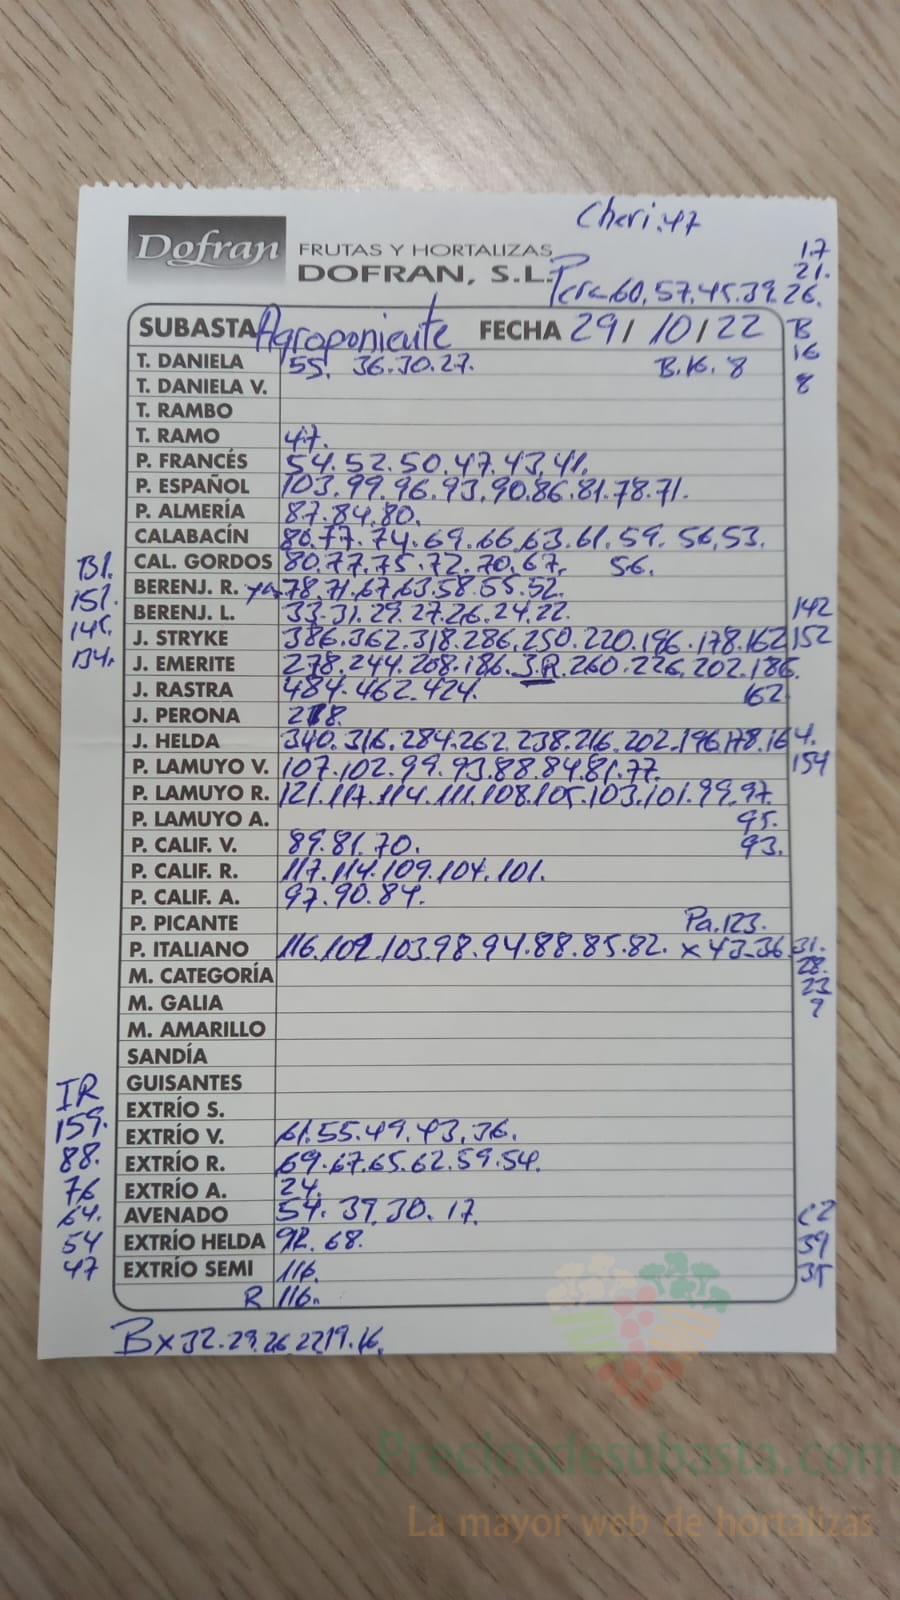 Cheri.47
Dofran
FRUTAS Y HORTALIZAS
DOFRAN, S.L.
17
21.
Pera 60.57.45.39.26.
SUBASTA Agroponiente FECHA 29/10/22 B
16
8
T. DANIELA 55. 36.30.27. B.16. 8
T. DANIELA V.
T. RAMBO
T. RAMO 47.
P. FRANCÉS 54.52.50.47.43.41.
P. ESPAÑOL 103.99.96.93.90.86.81.78.71.
P. ALMERÍA 87.84.80.
CALABACÍN 80.77.74.69.66.63.61.59.56.53.
CAL. GORDOS 80.77.75.72.70.67. 56.
BERENJ. R. 78.71.67.63.58.55.52.
BERENJ. L. 33.31.29.27.26.24.22. 142
J. STRYKE 386.362.318.286.250.220.196.178.162 152
J. EMERITE 278.244.208.186.J.R.260.226.202.186.
J. RASTRA 484.462.424. 162
J. PERONA
J. HELDA 340.316.284.262.238.216.202.196.178.164.
P. LAMUYO V. 107.102.99.93.88.84.81.77. 154
P. LAMUYO R. 121.117.114.111.108.105.103.101.99.97.
P. LAMUYO A. 95.
P. CALIF. V. 89.81.70. 93.
P. CALIF. R. 117.114.109.104.101.
P. CALIF. A. 97.90.84.
P. PICANTE Pa.123.
P. ITALIANO 116.109.103.98.94.88.85.82. x 43-36.31.
28.
23
9
M. CATEGORÍA
M. GALIA
M. AMARILLO
SANDÍA
GUISANTES
EXTRÍO S.
EXTRÍO V. 61.55.49.43.36.
EXTRÍO R. 69.67.65.62.59.54.
EXTRÍO A. 24.
AVENADO 54.39.30.17.
EXTRÍO HELDA 92.68.
EXTRÍO SEMI 116.
R 116.
151.
145.
134.
IR
159.
88.
76
64.
54
47
C2
39
35
Bx32.29.26.22.19.16.
Preciosdesubasta.com
La mayor web de hortalizas